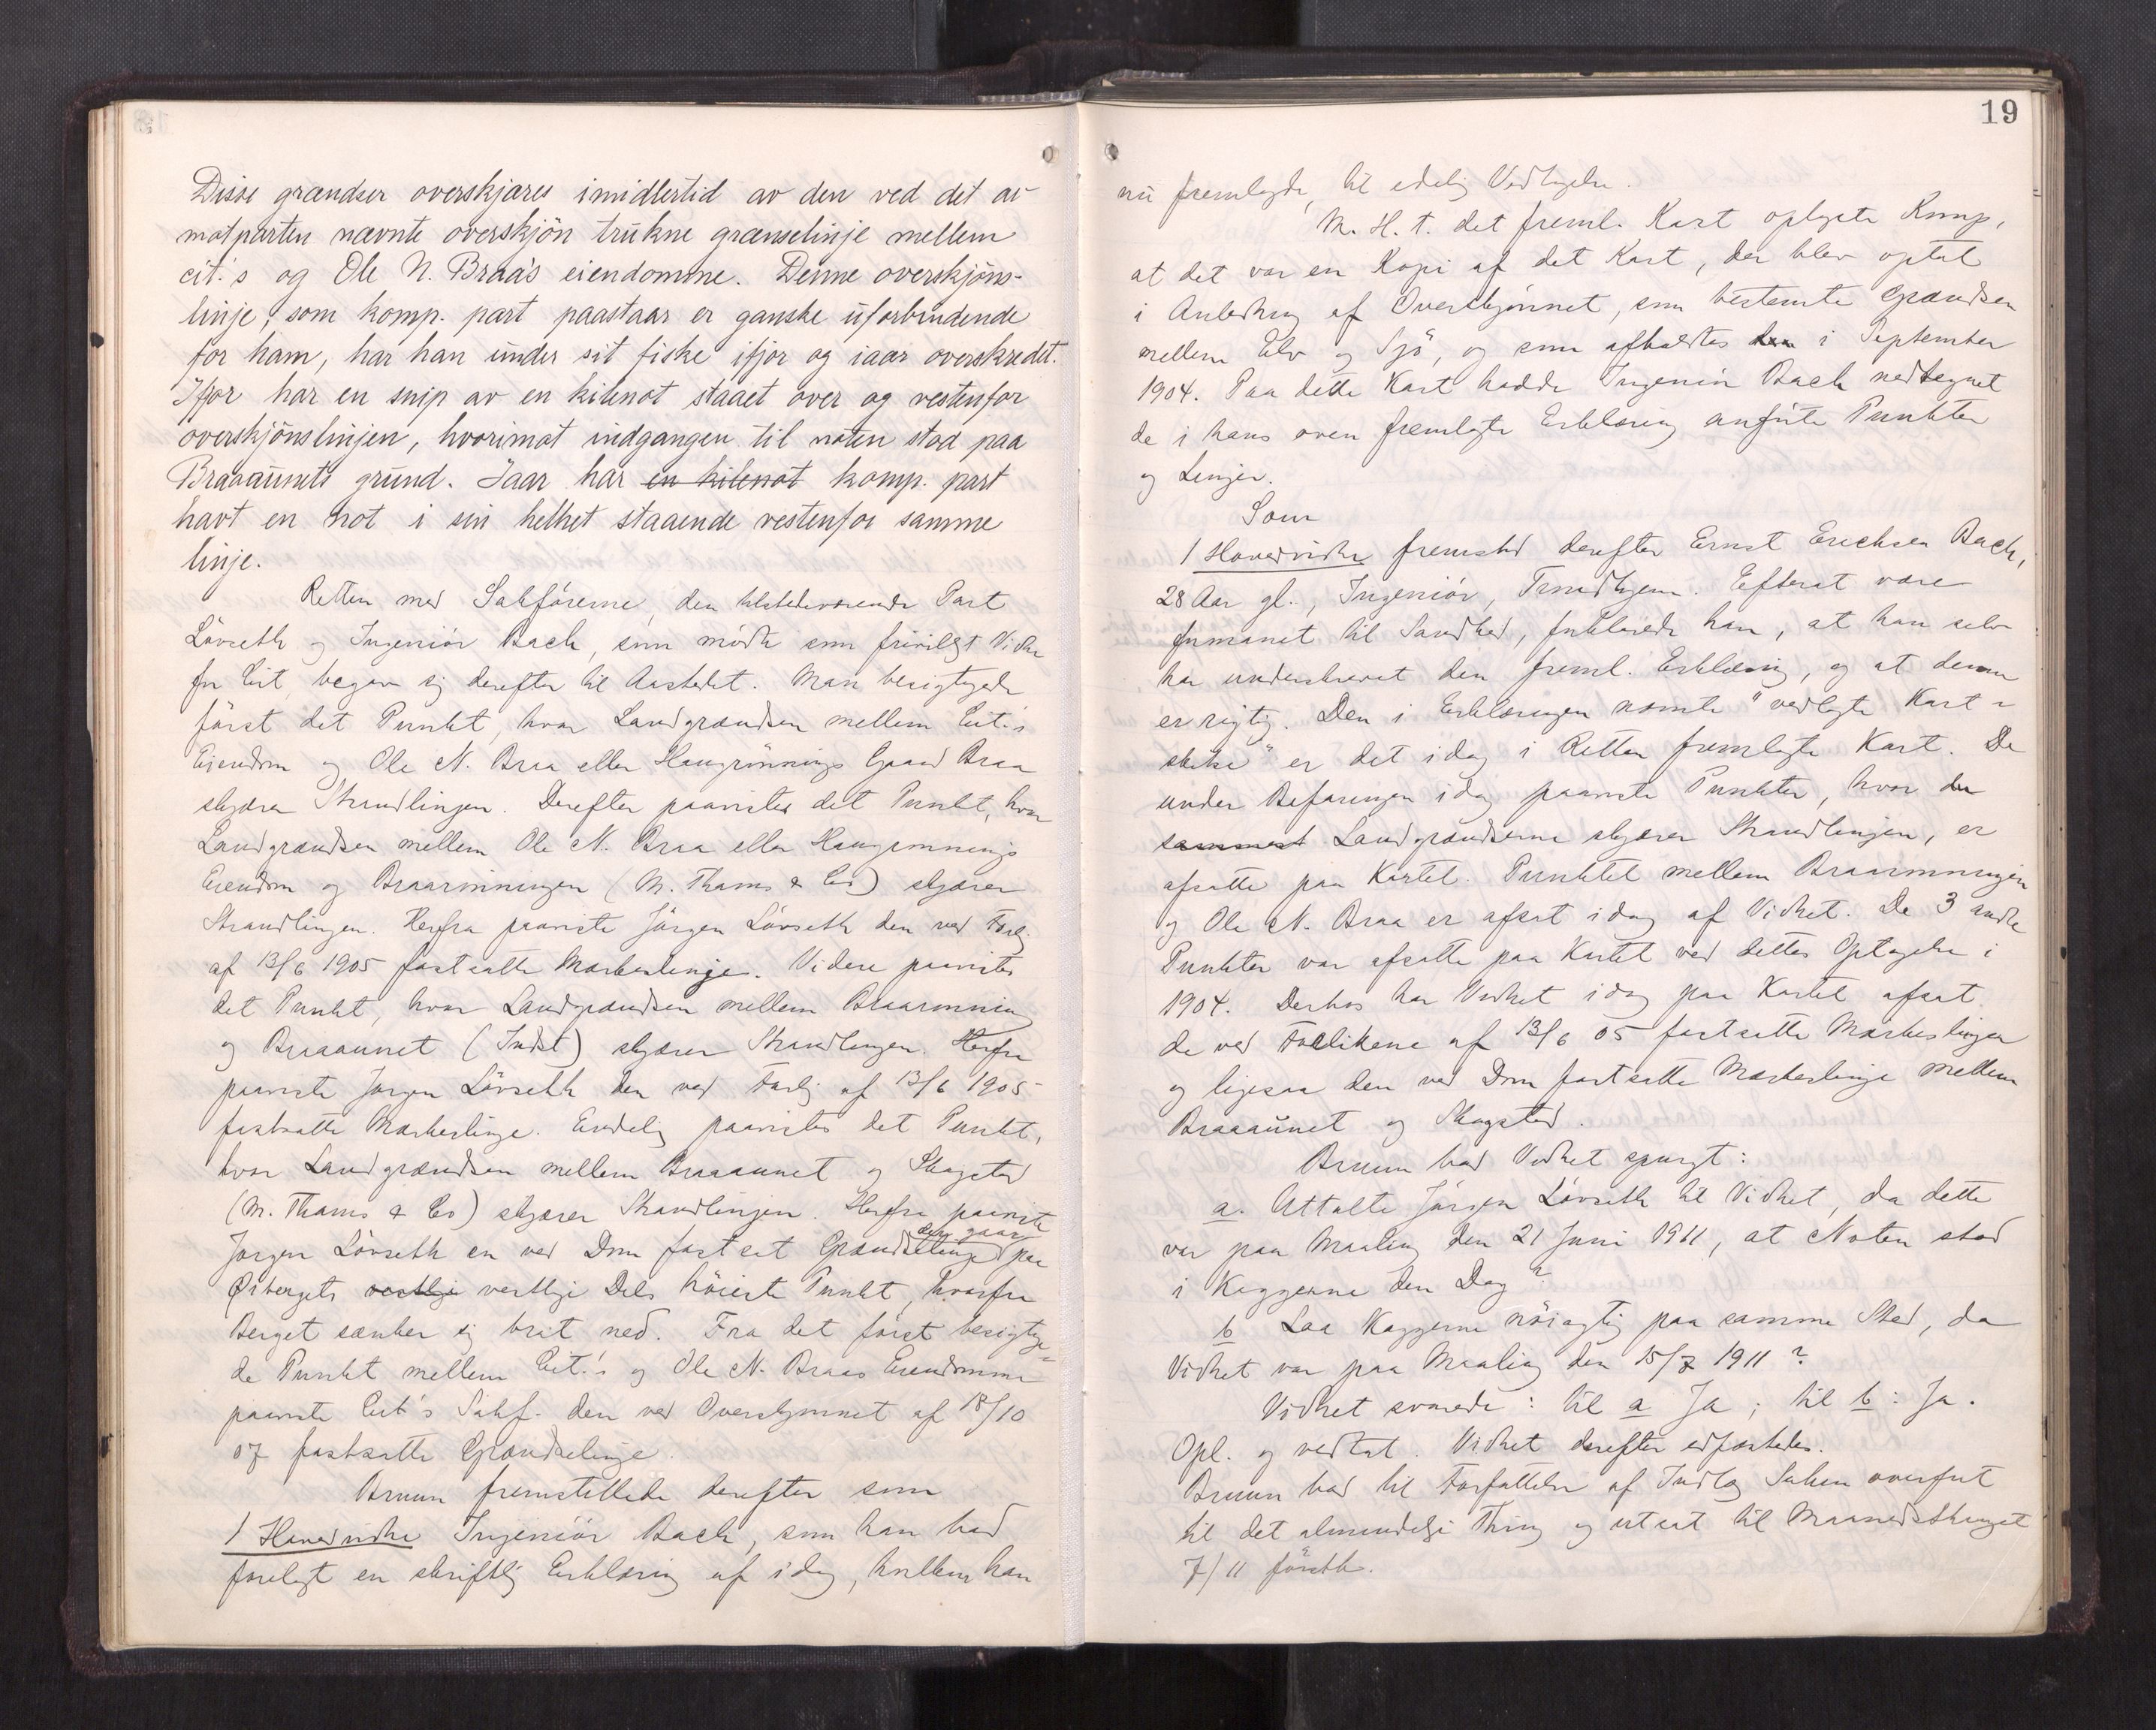 Disse grændser overskjæres imidlertid av den ved det av
motparten nævnte overskjön trukne grænselinje mellem
cit.'s og Ole N. Braa's eiendomme. Denne overskjöns-
linje, som komp. part paastaar er ganske uforbindende
for ham, har han under sit fiske ifjor og iaar overskredet.
Ifjor har en snip av en kilenot staaet over og vestenfor
overskjönslinjen, hvorimot indgangen til noten stod paa
Braaaunets grund. Iaar har en kilenot komp. part
havt en not i sin helhet staaende vestenfor samme
linje.
Retten med Sakförerne, den tilstedeværende Part
Lövseth og Ingeniör Bach, som mödte som frivilligt Vidne
for Cit. begav sig derefter til Aastedet. Man besigtigede
först det Punkt, hvor Landgrændsen mellem Cit.'s
Eiendom og Ole N. Braa eller Haugrönnings Gaard Braa
skjærer Strandlinjen. Derefter paavistes det Punkt, hvor
Landgrændsen mellem Ole N. Braa eller Haugrönnings
Eiendom og Braarönningen (M. Thams & Co) skjærer
Strandlinjen. Herfra paaviste Jörgen Lövseth den ved Forlig
af 13/6 1905 fastsatte Mærkeslinje. Videre paavistes
det Punkt, hvor Landgrændsen mellem Braarönning
og Braaaunet (Indst) skjærer Strandlinjen. Herfra
paaviste Jörgen Lövseth den ved Forlig af 13/6 1905
fastsatte Mærkeslinje. Endelig paavistes det Punkt,
hvor Landgrændsen mellem Braaaunet og Skogstad
(M. Thams & Co) skjærer Strandlinjen. Herfra paaviste
Jörgen Lövseth en ved Dom fastsat Grændselinje der gaar paa
Östbergets vestlige vestlige Dels höieste Punkt, hvorfra
Berget sænker sig brat ned. Fra det först besigtige-
de Punkt mellem Cit.'s og Ole N. Braas Eiendomme
paaviste Cit's Sakf. den ved Overskjönnet af 18/10
07 fastsatte Grændselinje.
Bruun fremstillede derefter som
1 Hovedvidne Ingeniör Bach, som han bad
forelagt en skriftlig Erklæring af idag, hvilken han
19
nu fremlagde, til edelig Vedtagelse.
M. H. t. det freml. Kart oplyste Komp,
at det var en Kopi af det Kart, der blev optat
i Anledning af Overskjönnet, som bestemte Grændsen
mellem Elv og Sjö, og som afholdtes den i September
1904. Paa dette Kart hadde Ingeniör Bach nedtegnet
de i hans oven fremlagte Erklæring anförte Punkter
og Linjer.
Som
1 Hovedvidne fremstod derefter Ernst Erichsen Bach,
28 Aar gl., Ingeniör, Trondhjem. Efterat være
formanet til Sandhed, forklarede han, at han selv
har underskrevet den freml. Erklæring, og at denne
er rigtig. Den i Erklæringen nævnte "vedlagte Kart-
skitse" er det idag i Retten fremlagte Kart. De
under Befaringen idag paaviste Punkter, hvor de
sammest Landgrændserne skjærer Strandlinjen, er
afsatte paa Kartet. Punktet mellem Braarönningen
og Ole N. Braa er afsat idag af Vidnet. De 3 andre
Punkter var afsatte paa Kartet ved dettes Optagelse i
1904. Derhos har Vidnet idag paa Kartet afsat
de ved Forlikene af 13/6 05 fastsatte Mærkeslinjer
og ligesaa den ved Dom fastsatte Mærkeslinje mellem
Braaaunet og Skogstad.
Bruun bad Vidnet spurgt:
a. Uttalte Jörgen Lövseth til Vidnet, da dette
var paa Maaling den 21 Juni 1911, at Noten stod
i Kaggerne den Dag?
b Laa Kaggerne nöiagtig paa samme Sted, da
Vidnet var paa Maaling den 15/7 1911?
Vidnet svarede: til a Ja; til b: Ja.
Opl. og vedtat. Vidnet derefter edfæstedes.
Bruun bad til Forfattelse af Indlæg Saken overfört
til det almindelige Thing og utsat til Maanedsthinget
7/11 förstk.